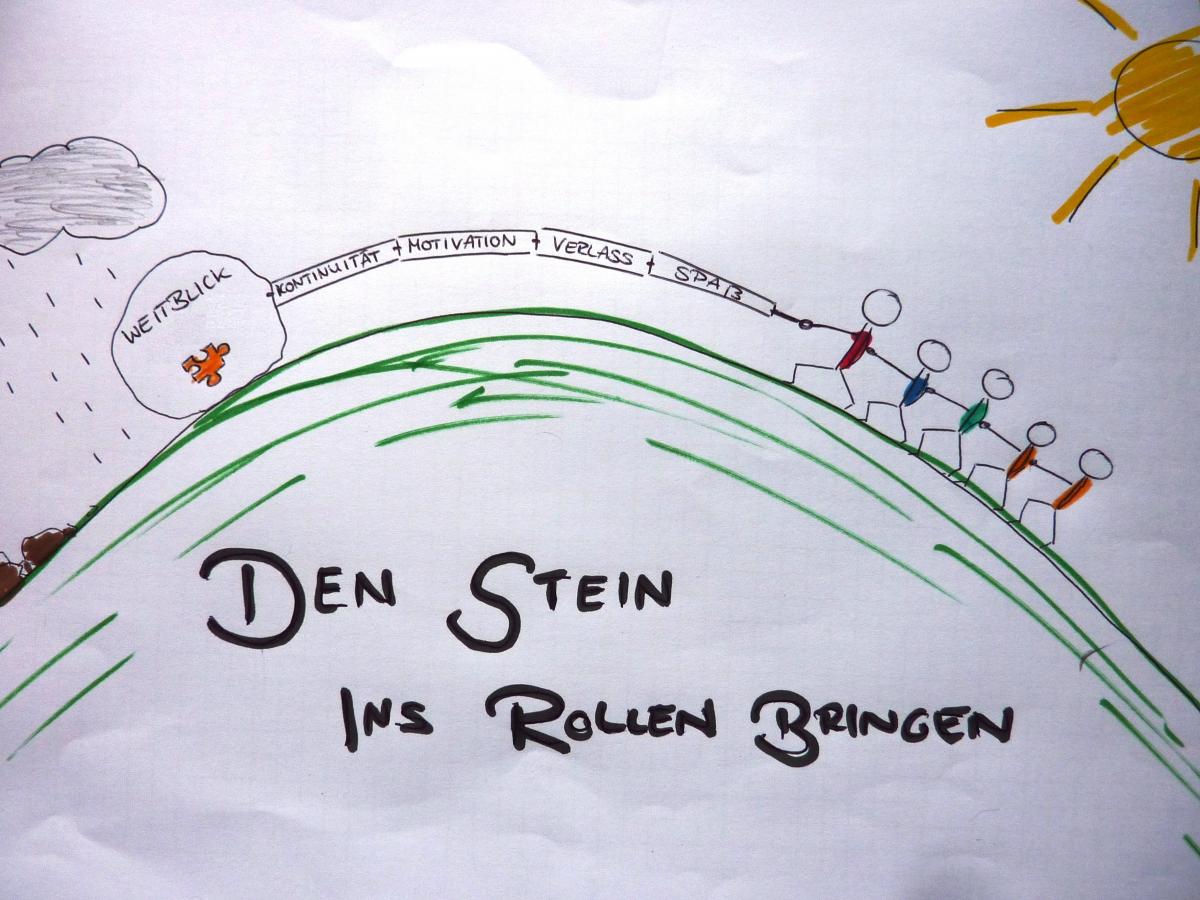 WEITBLICK
KONTINUITÄT
MOTIVATION
VERLASS
SPAß
DEN STEIN
INS ROLLEN BRINGEN